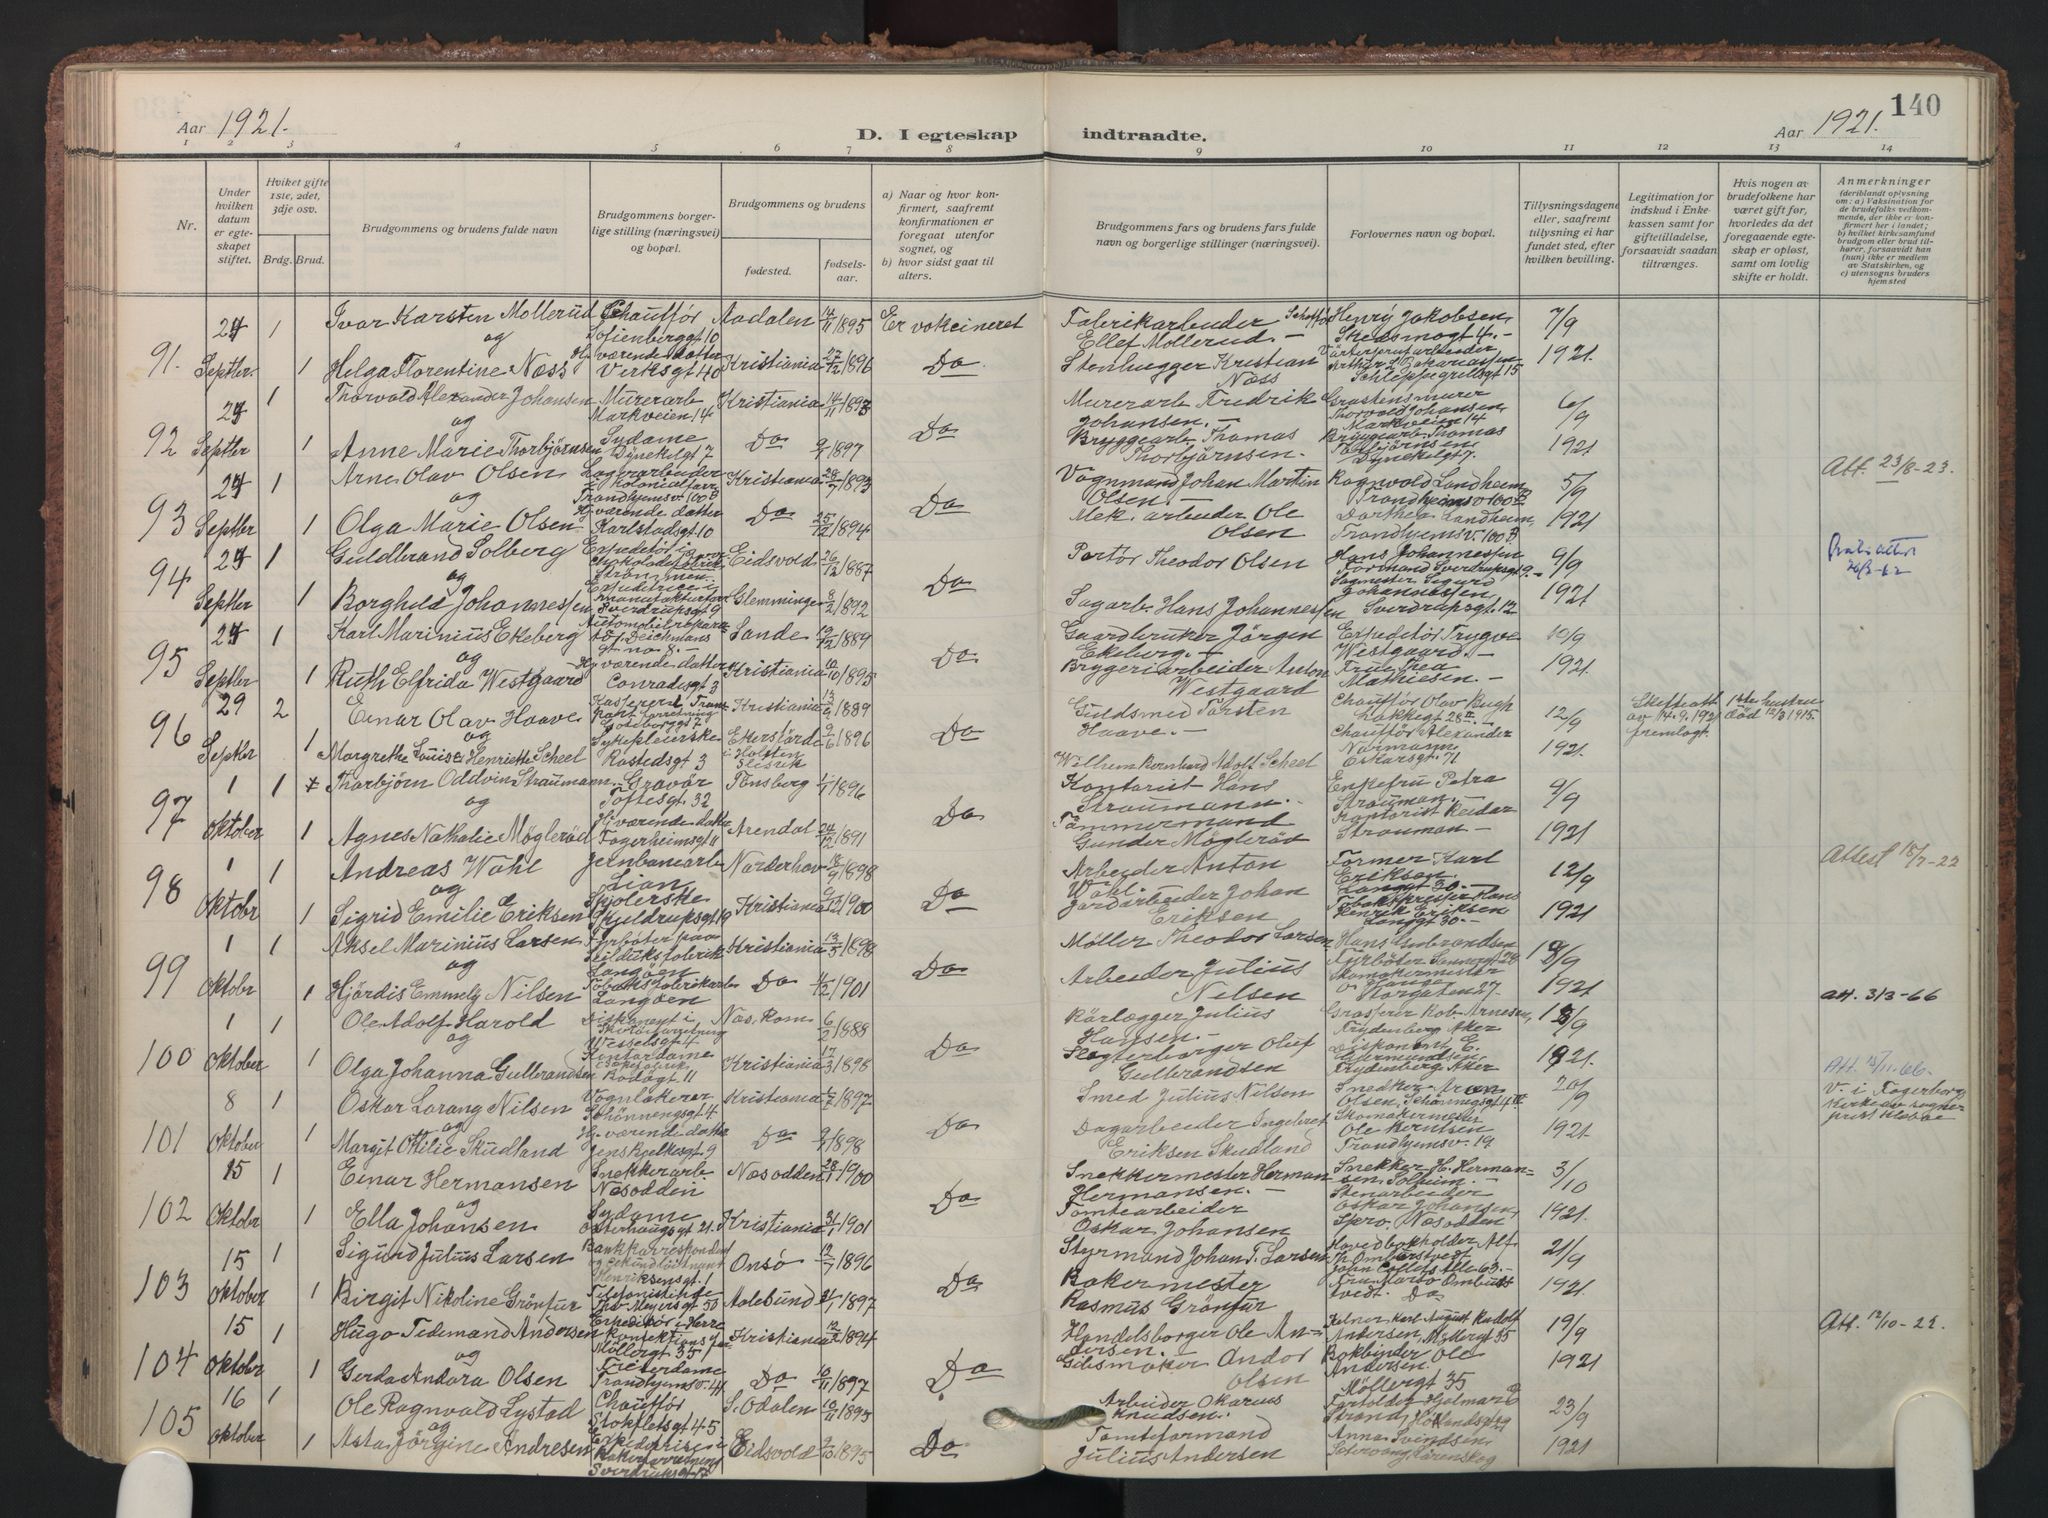 140
Aar 1921.
D. I egteskap indtraadte.
Aar 1921.
1 2 3 4 5 6 7 8 9 10 11 12 13 14
Nr.
Under hvilken datum er egteskapet stiftet.
Hviket gifte 1ste, 2det, 3dje osv.
Brdg. Brud.
Brudgommens og brudens fulde navn
Brudgommens borgerlige stilling (næringsvei) og bopæl.
Brudgommens og brudens
fødested.
fødselsaar.
a) Naar og hvor konfirmert, saafremt konfirmationen er foregaat utenfor sognet, og
b) hvor sidst gaat til alters.
Brudgommens fars og brudens fars fulde navn og borgerlige stillinger (næringsvei).
Forlovernes navn og bopæl.
Tillysningsdagene eller, saafremt tillysning ei har fundet sted, efter hvilken bevilling.
Legitimation for indskud i Enkekassen samt for giftetilladelse, forsaavidt saadan tiltrænges.
Hvis nogen av brudefolkene har været gift før, hvorledes da det foregaaende egteskap er opløst, samt om lovlig skifte er holdt.
Anmerkninger
(deriblandt oplysning om: a) Vaksination for de brudefolks vedkommende, der ikke er konfirmert her i landet; b) hvilket kirkesamfund brudgom eller brud tilhører, forsaavidt han (hun) ikke er medlem av Statskirken, og c) utensogns bruders hjemsted
91. 24 Septbr. 1 Ivar Karsten Mollerud Chauffør Sofienberggt 10 Aadalen 14/11 1895 Er vakcineret Fabrikarbeider Ellef Mollerud. Henry Jakobsen Skedsmogt 4. 7/9
og
1 Helga Florentine Næss Hj. værende datter Verksgt 40 Kristiania 27/12 1896 Do Stenhugger Kristian Næss Schleppegrellsgt 15 1921.
92 24 Septbr 1 Thorvald Alexander Johansen Murerarb Markveien 14 Kristiania 14/11 1893 Murerarb Fredrik Johansen. Thorvald Johansen, Markveien 14 6/9
og
1 Anne Marie Thorbjørnsen Sydame Dynekilgt 7 Do 9/1 1897 Do Bryggearb. Thomas Thorbjørnsen. Bryggearb. Thomas Thorbjørnsen. Dynekilgt 7. 1921
93 24 Septbr 1 Arne Olav Olsen Lagerarbeider Trondhjemsv. 100 B Kristiania 28/7 1893 Vognmand Johan Martin Olsen. Ragnvald Landheim Trondheimsv 100 B 5/9 Att. 23/8-23.
og
1 Olga Marie Olsen Hj. værende datter Karlstadgt 10 Do 25/12 1894 Do Mek. arbeider Ole Olsen Dorthea Landheim, Trondhjemsv. 100 B 1921
94 24 Septbr 1 Guldbrand Solberg Eidsvold 26/12 1887 Portør Theodor Olsen Hans Johannessen Formand Sverdrupsgt 9. 9/9
og
1 Borghild Johannessen Sverdrupsgt 9 Glemminge 8/2 1892 Do Sagarb. Hans Johannessen Sagmester Sigurd Johannessen Sverdrupsgt. 12 1921
95 24 Septbr 1 Karl Marinius Ekeberg Deichmans gt no. 8. Sande 19/12 1889 Gaardbruker Jörgen Ekeberg. Expeditør Trygve Westgaard. 10/9
og
1 Ruth Elfrida Westgaard Hj. værende datter Conradisgt 3 Kristiania 10/10 1895 Do Bryggeriarbeider Anton Westgaard Frue Thea Mathiesen. 1921.
96 29 Septbr 2 Einar Olav Haave Kristiania 1889 Guldsmed Torsten Haave. Chauffør Olav Bugh Lakkegt 28 II 12/9 Skifteatt av 14.9.1921 fremlagt. 1ste hustru død 12/3 1915.
og
1 Margrethe Louise Henriette Scheel Sykepleierske Rostedsgt 3 Holsten 9/6 1896 Do Wilhelm Bernhard Adolf Scheel Chauffør Alexander Normann Oskarsgt. 71 1921.
97 1 Oktober 1 Thorbjørn Oddvin Straumann Gravør Toftesgt. 32 Tønsberg 1/1 1896 Kontorist Hans Straumann. Enkefru Petra Strauman. 9/9
og
1 Agnes Nathalie Møglerød Hj. værende datter Fagerheimsgt 11 Arendal 24/12 1891 Do Tømmermand Gunder Møglerød Kontorist Reidar Strauman 1921.
98 1 Oktobr 1 Andreas Wåhl Jernbanearb Lian Norderhov 18/9 1898 Arbeider Anton Wåhl. Former Karl Eriksen. Langgt 30. 12/9 Attest 18/7-22
og
1 Sigrid Emilie Eriksen Kristiania 1900 Do Jordarbeider Johan Eriksen Henrik Eriksen Langgt 30. 1921
99 1 Oktobr 1 Aksel Marinius Larsen Fyrbøter paa Seilduksfabrik Langøen Kristiania 13/5 1898 Møller Theodor Larsen Hans Gulbrandsen Fyrbøter 18/9
og
1 Hjørdis Emmely Nilsen Tobaksfabrikarb Langøen Do 4/2 1901 Do Arbeider Julius Nilsen Skomakermester Storgaten 27. 1921 att. 3/3-66
100 1 Oktober 1 Ole Adolf Harold Wesselsgt 4 Næs, Rom. 6/2 1888 Rørlægger Julius Hansen. Grosserer Kob. Arnesen, Frydenberg Aker 18/9
og
1 Olga Johanna Gulbrandsen Kontordame Bodøgt 11 Kristiania 17/3 1898 Do Slagterborger Oluf Gulbrandsen Disponent E. Frydenberg Aker 1921. Att. 15/11-66.
101 8 Oktober 1 Oskar Lorang Nilsen Vognlakerer Schønningsgt 4 Kristiania 1/7 1897 Smed Julius Nilsen Snedker Aron Olsen, Schønningsgt 4 III 20/9 V. i Fagerborg Kirke av sogneprest Klaboe
og
1 Margit Otilie Skudland Hj. værende datter Jens Bjelkesgt 9 Do 9/1 1898 Do Dagarbeider Ingebret Eriksen Skudland Skomakermester Ole Berntsen Trondhjemsv. 19 1921.
102 15 Oktober 1 Einar Hermansen Snekkerarb. Næsodden Næsodden 28/1 1900 Snekkermester Herman Hermansen. Snekker H. Hermansen. Solheim. 3/10
og
1 Ella Johansen Sydame Osterhausgt 21. Kristiania 3/1 1901 Do Tomtearbeider Oskar Johansen Stenarbeider Oskar Johansen Spro. Næsodden 1921.
103 15 Oktober 1 Sigurd Julius Larsen Bankkorrespondent og sekundløitnant Henriksensgt. 1 Onsö 12/7 1896 Styrmand Johan T. Larsen Hovedbokholder Alf Th. Ombustvedt John Collets Alle 63. 21/9
1 Birgit Nikoline Grönfur Telefonistinde Thv. Meyersgt 50 Aalesund 21/1 1897 Do Bakermester Rasmus Grönfur Ombustvedt. Do 1921.
104 15 Oktober 1 Hugo Tidemand Andersen Expeditør i Herre konfektions Møllergt 35 Kristiania 1894 Handelsborger Ole Andersen. Kelner Karl August Rudolf Andersen, Møllergt 35 19/9 Att. 12/10-22.
og
1 Gerda Andora Olsen Trondhjemsv. 41 Do 10/11 1897 Do Gibsmaker Andor Olsen Bokbinder Ole Andersen. Möllergt 35 1921
105 16 oktober 1 Ole Ragnvald Lystad Chauffør Stokfletsgt 45 S. Odalen 10/11 1895 Arbeider Okarius Knudsen. Hjalmar Strand, 23/9
og
1 Asta Jörgine Andresen Sverdrupsgt Eidsvold 9/10 1895 Do Tomteformand Julius Andersen Anna Svendsen Lørenskog 1921